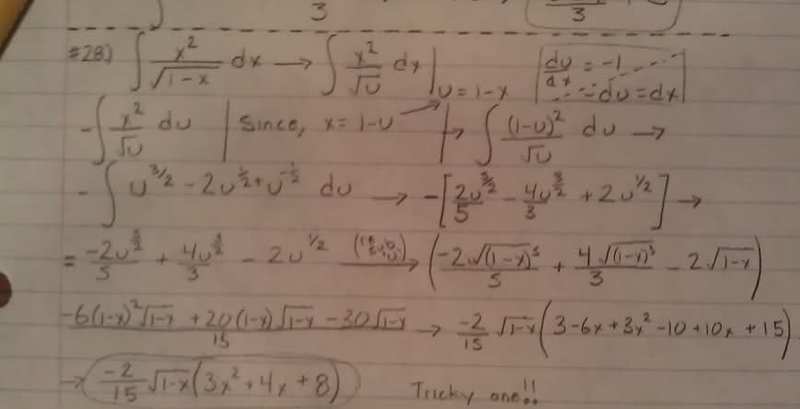 3
3
#28) ∫ x²/√(1-x) dx → ∫ x²/√u dx | u = 1-x | du/dx = -1
-du = dx
-∫ x²/√u du | Since, x = 1-u → ∫ (1-u)²/√u du →
-∫ u^(3/2) - 2u^(1/2) + u^(-1/2) du → -[2u^(5/2)/5 - 4u^(3/2)/3 + 2u^(1/2)] →
= -2u^(5/2)/5 + 4u^(3/2)/3 - 2u^(1/2) → (-2√(1-x)⁵/5 + 4√(1-x)³/3 - 2√(1-x))
-6(1-x)²√(1-x) + 20(1-x)√(1-x) - 30√(1-x) / 15 → -2/15 √(1-x) (3-6x+3x²-10+10x+15)
→ -2/15 √(1-x) (3x²+4x+8) Tricky one!!